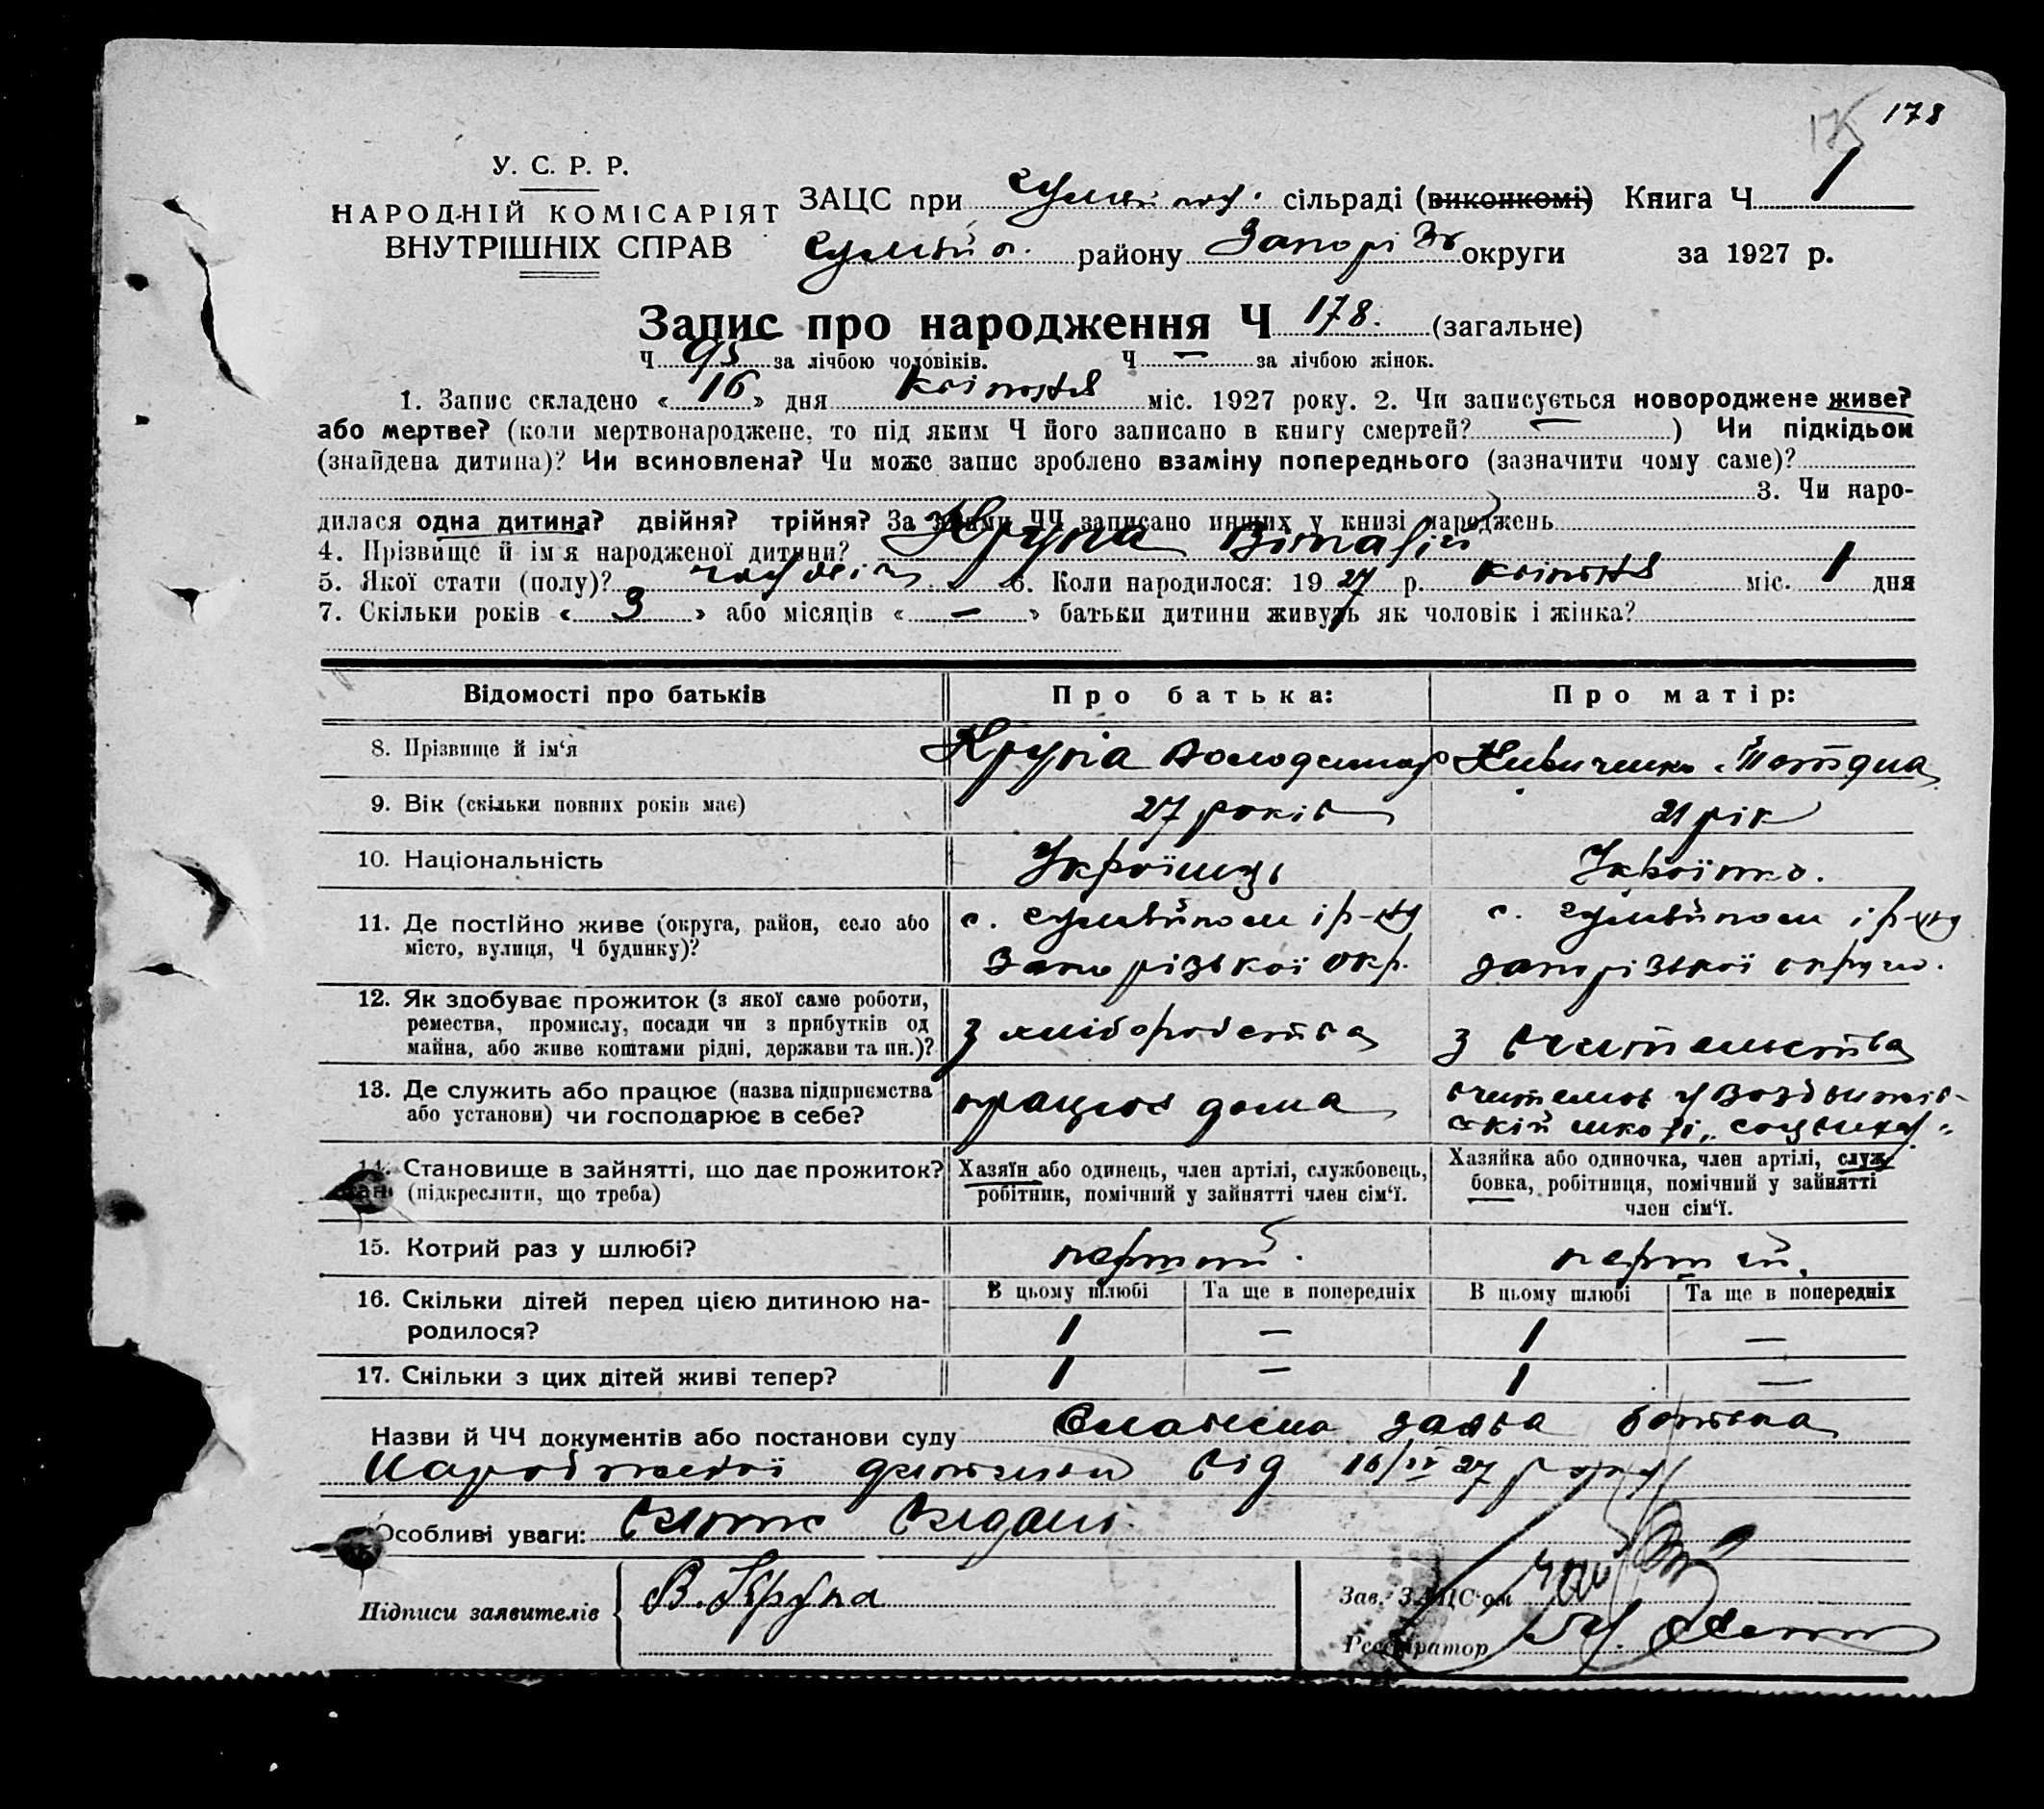 178
У. С. Р. Р.
НАРОДНІЙ КОМІСАРІЯТ
ВНУТРІШНІХ СПРАВ
ЗАЦС при сільраді (виконкомі) Книга Ч 1
району Запоріз округи за 1927 р.
Запис про народження Ч 178. (загальне)
Ч 95 за лічбою чоловіків. Ч — за лічбою жінок.
1. Запис складено «16» дня квітня міс. 1927 року. 2. Чи записується новороджене живе?
або мертве? (коли мертвонароджене, то під яким Ч його записано в книгу смертей? — ) Чи підкідьок
(знайдена дитина)? Чи всиновлена? Чи може запис зроблено взаміну попереднього (зазначити чому саме)?
3. Чи наро-
дилася одна дитина? двійня? трійня? За якими ЧЧ записано инших у книзі народжень
4. Прізвище й ім'я народженої дитини? Крупа Віталій
5. Якої стати (полу)? 6. Коли народилося: 1927 р. квітня міс. 1 дня
7. Скільки років «3» або місяців «—» батьки дитини живуть як чоловік і жінка?
Відомості про батьків Про батька: Про матір:
8. Прізвище й ім'я Крупа Володимир
9. Вік (скільки повних років має) 27 років 21 рік
10. Національність Українець Українка.
11. Де постійно живе (округа, район, село або
місто, вулиця, Ч будинку)?
с. Гуляйполе і р-ну с. Гуляйполе і р-ну
Запорізької окр. Запорізької округи.
12. Як здобуває прожиток (з якої саме роботи,
ремества, промислу, посади чи з прибутків од
майна, або живе коштами рідні, держави та ин.)?
з хліборобства з вчительства
13. Де служить або працює (назва підприємства
або установи) чи господарює в себе?
працює дома
вчителює у Воздвижів-
ській школі „соцвиху"
14. Становище в зайнятті, що дає прожиток?
(підкреслити, що треба)
Хазяїн або одинець, член артілі, службовець,
робітник, помічний у зайнятті член сім'ї.
Хазяйка або одиночка, член артілі, служ-
бовка, робітниця, помічний у зайнятті
член сім'ї.
15. Котрий раз у шлюбі? перший. перший.
16. Скільки дітей перед цією дитиною на-
родилося?
В цьому шлюбі Та ще в попередніх В цьому шлюбі Та ще в попередніх
1 — 1 —
17. Скільки з цих дітей живі тепер? 1 — 1 —
Назви й ЧЧ документів або постанови суду Словесна заява батька
народженої дитини від 16/IV 27 року
Особливі уваги: Витяг видано.
Підписи заявителів В. Крупа
Зав. ЗАЦС'ом
Реєстратор